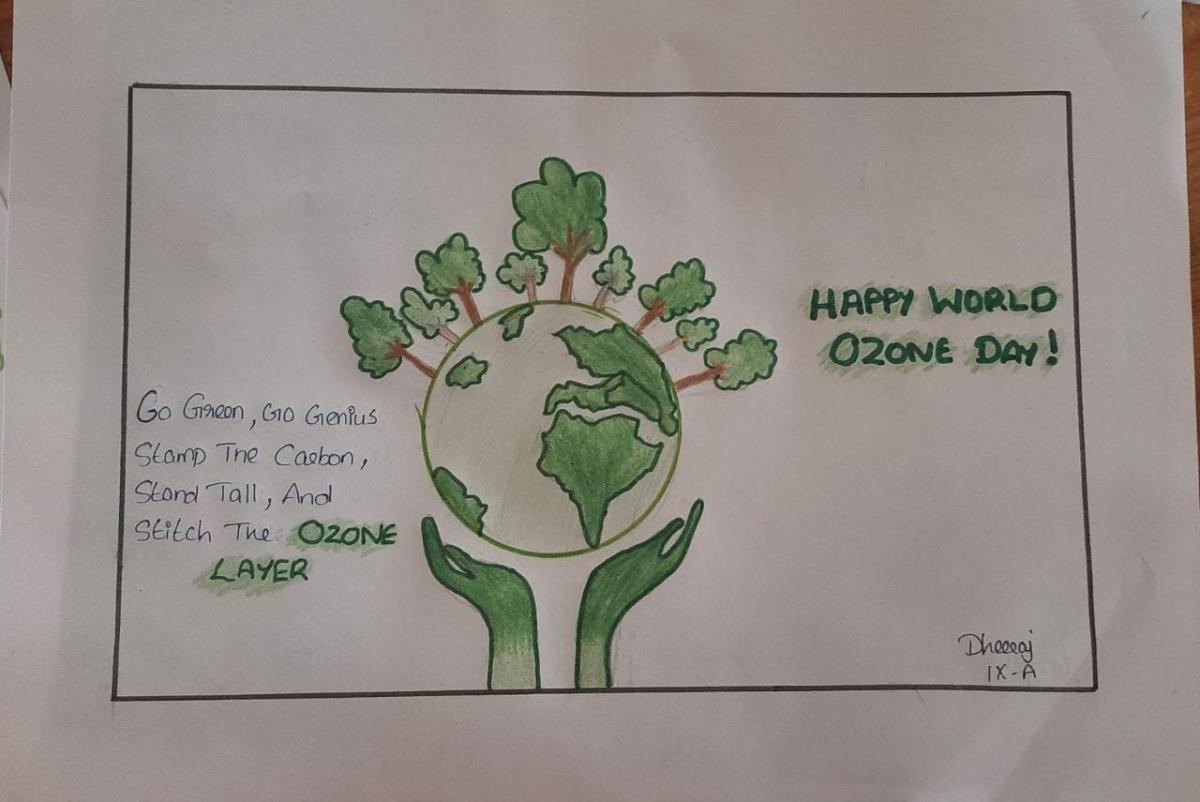 Go Green, Go Genius
Stamp The Carbon,
Stand Tall, And
Stitch The OZONE
LAYER
HAPPY WORLD
OZONE DAY!
Dheeraj
IX-A